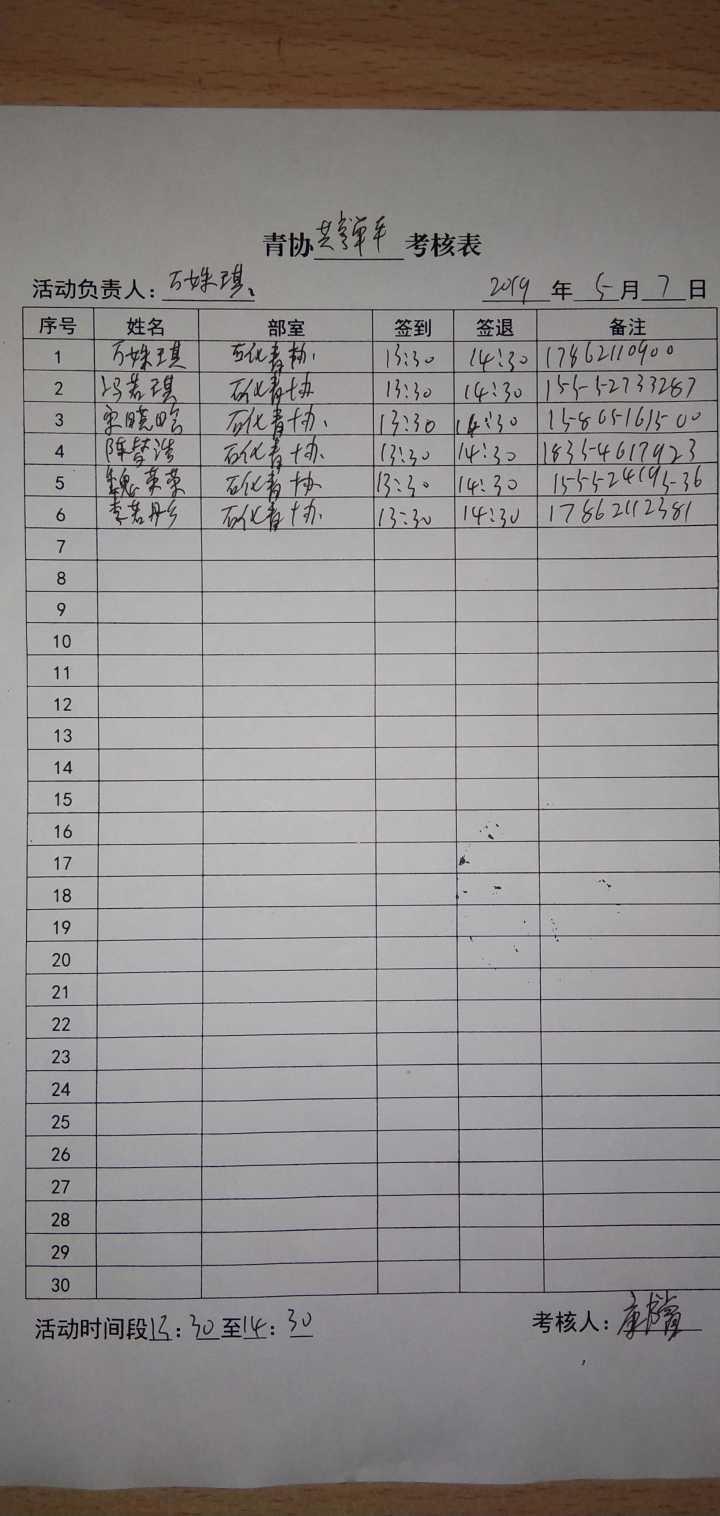 青协共享单车考核表
活动负责人：万姝琪 2019年5月7日
序号 姓名 部室 签到 签退 备注
1 万姝琪 石化青协 13:30 14:30 17862110900
2 冯若琪 石化青协 13:30 14:30 15552733287
3 宋晓晗 石化青协 13:30 14:30 15865161500
4 陈赞浩 石化青协 13:30 14:30 18354617923
5 魏英荣 石化青协 13:30 14:30 15552419536
6 李若丹 石化青协 13:30 14:30 17862112381
7
8
9
10
11
12
13
14
15
16
17
18
19
20
21
22
23
24
25
26
27
28
29
30
活动时间段13:30至14:30 考核人：